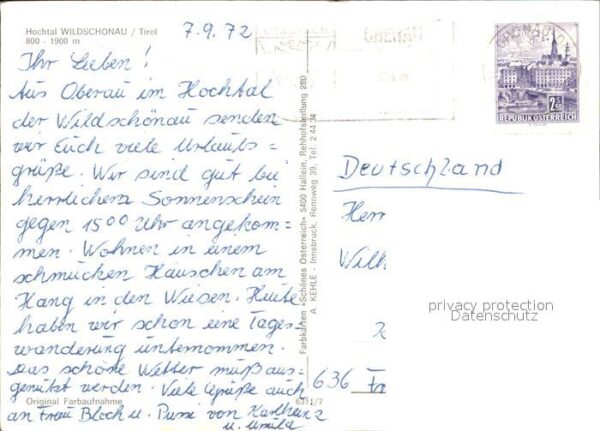 Hochtal WILDSCHÖNAU / Tirol
800 - 1900 m
7.9.72
Ihr Lieben!
Aus Oberau im Hochtal
der Wildschönau senden
wir Euch viele Urlaubs=
grüße. Wir sind gut bei
herrlichem Sonnenschein
gegen 15 00 Uhr angekom=
men. Wohnen in einem
schmucken Häuschen am
Hang in den Wiesen. Heute
haben wir schon eine Tages-
wanderung unternommen.
Das schöne Wetter muß aus-
genützt werden. Viele Grüße auch
an Frau Bloch u. Pussi von Karlheinz
u. Ursula
Original Farbaufnahme
6311/7
Farbkarten »Schönes Österreich« 5400 Hallein, Rehhofsiedlung 280
A KEHLE - Innsbruck, Rennweg 39, Tel. 2 44 34
REPUBLIK ÖSTERREICH
Deutschland
Herr
Wilh
636
privacy protection
Datenschutz